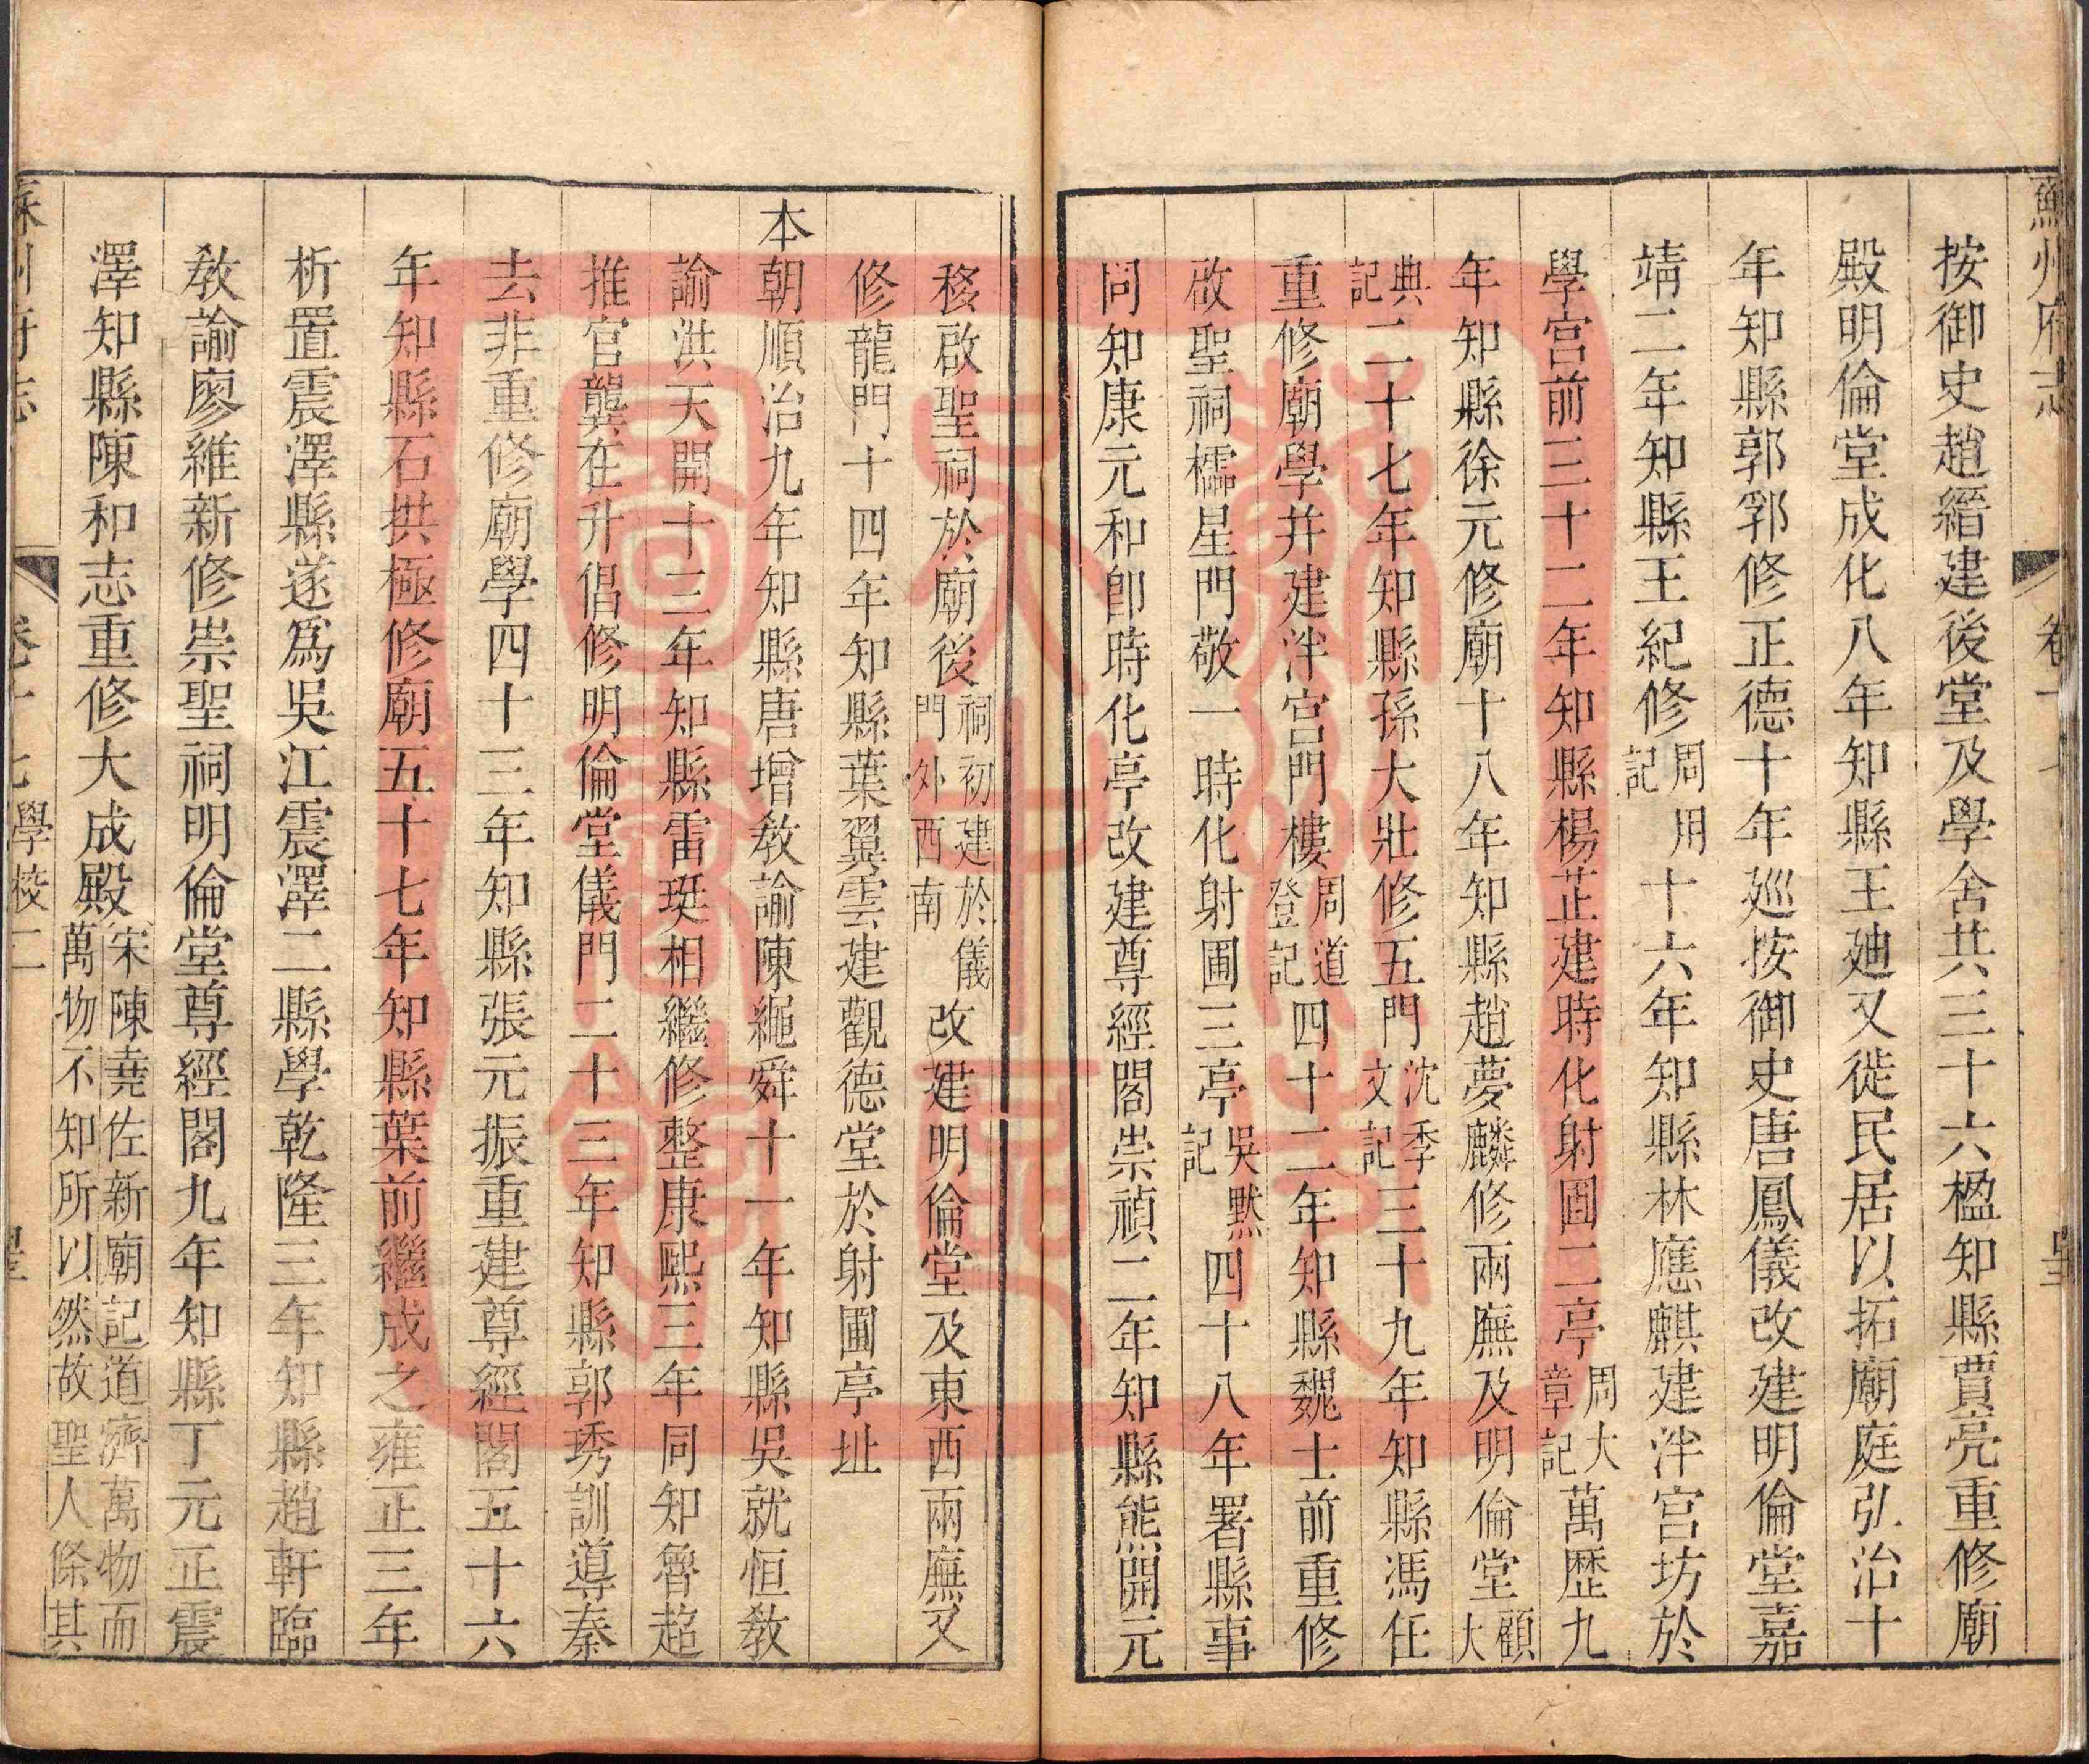 蘇州府志 卷十七
按御史趙縉建後堂及學舍共三十六楹知縣賈亮重修廟
殿明倫堂成化八年知縣王廸又徙民居以拓廟庭弘治十
年知縣郭郛修正德十年巡按御史唐鳳儀改建明倫堂嘉
靖二年知縣王紀修周用記十六年知縣林應麒建泮宮坊於
學宮前三十二年知縣楊芷建時化射圃二亭周大章記萬歷九
年知縣徐元修廟十八年知縣趙夢麟修兩廡及明倫堂顧大
典記二十七年知縣孫大壯修五門沈季文記三十九年知縣馮任
重修廟學并建泮宮門樓周道登記四十二年知縣魏士前重修
啟聖祠櫺星門敬一時化射圃三亭吳默記四十八年署縣事
同知康元和卽時化亭改建尊經閣崇禎二年知縣熊開元
移啟聖祠於廟後祠初建於儀門外西南改建明倫堂及東西兩廡又
修龍門十四年知縣葉翼雲建觀德堂於射圃亭址
本朝順治九年知縣唐增教諭陳繩舜十一年知縣吳就恒教
諭洪天開十三年知縣雷珽相繼修整康熙三年同知魯超
推官龔在升倡修明倫堂儀門二十三年知縣郭琇訓導秦
去非重修廟學四十三年知縣張元振重建尊經閣五十六
年知縣石拱極修廟五十七年知縣葉前繼成之雍正三年
析置震澤縣遂爲吳江震澤二縣學乾隆三年知縣趙軒臨
教諭廖維新修崇聖祠明倫堂尊經閣九年知縣丁元正震
澤知縣陳和志重修大成殿宋陳堯佐新廟記道濟萬物而萬物不知所以然故聖人條其
蘇州府志 卷十七 學校二